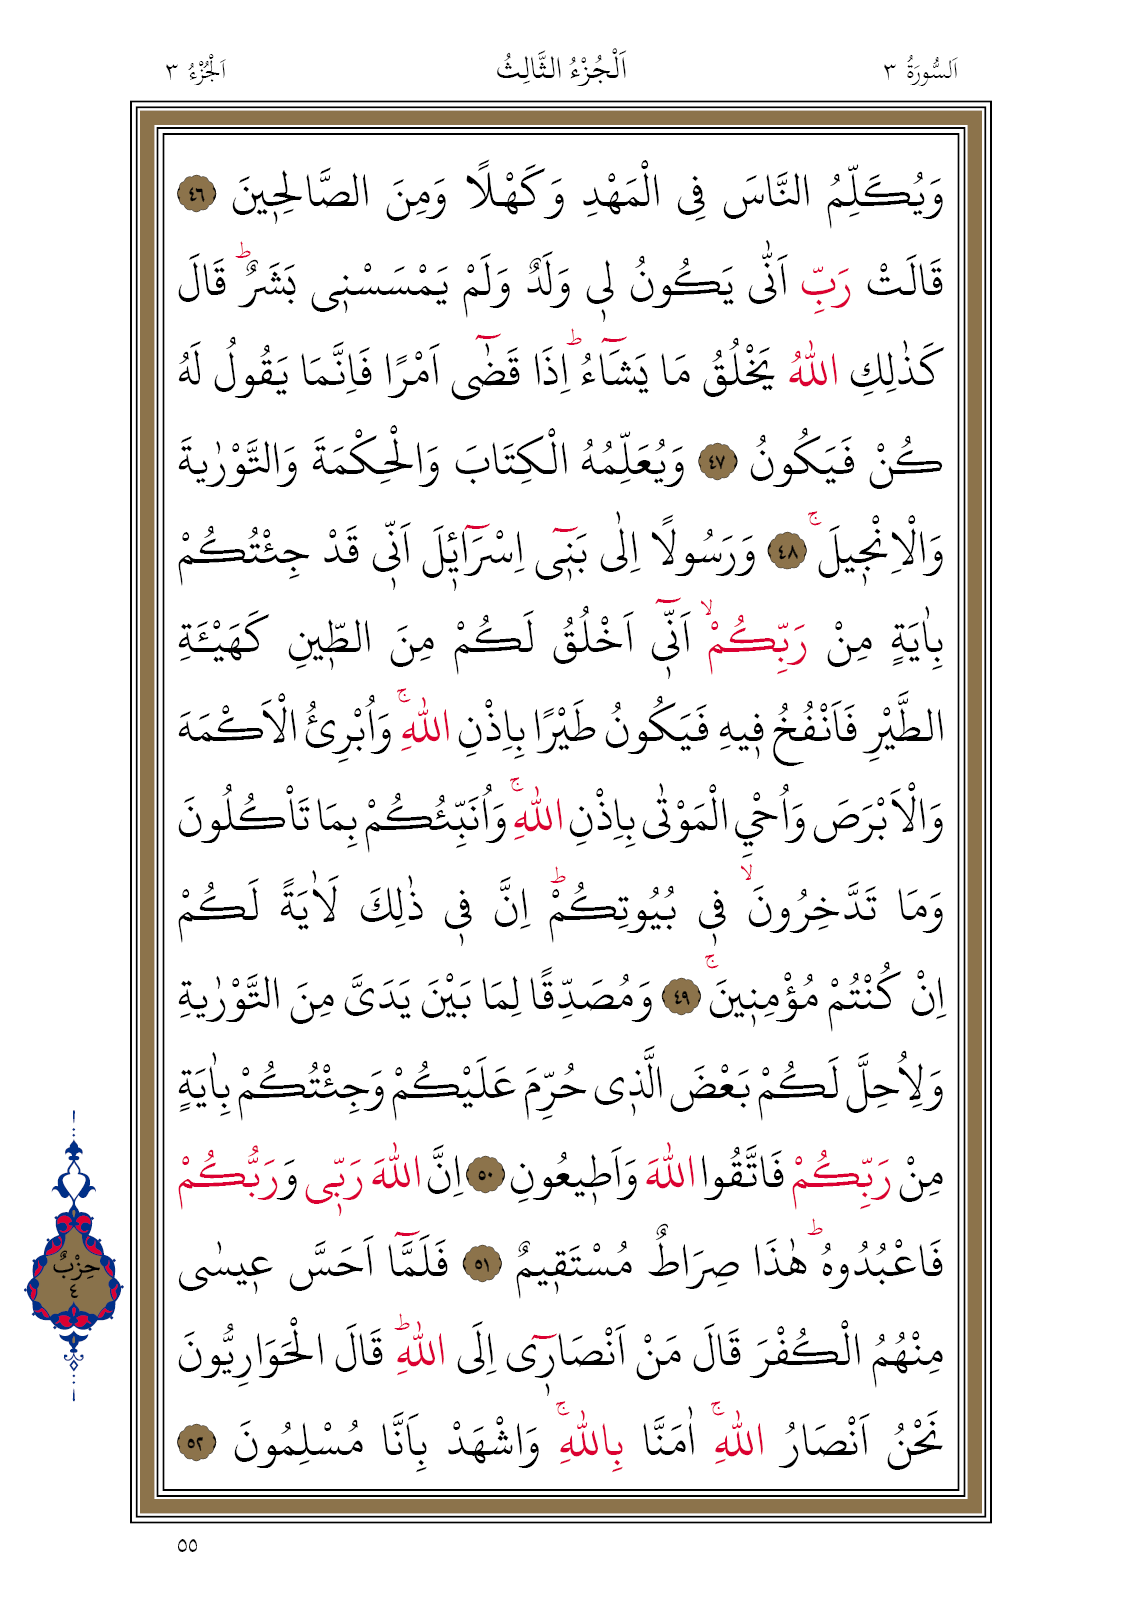 اَلسُّورَةُ ٣ اَلْجُزْءُ الثَّالِثُ اَلْجُزْءُ ٣
وَيُكَلِّمُ النَّاسَ فِى الْمَهْدِ وَكَهْلًا وَمِنَ الصَّالِح۪ينَ ٤٦
قَالَتْ رَبِّ اَنّٰى يَكُونُ ل۪ي وَلَدٌ وَلَمْ يَمْسَسْن۪ى بَشَرٌۜ قَالَ
كَذٰلِكِ اللّٰهُ يَخْلُقُ مَا يَشَٓاءُۜ اِذَا قَضٰٓى اَمْرًا فَاِنَّمَا يَقُولُ لَهُ
كُنْ فَيَكُونُ ٤٧ وَيُعَلِّمُهُ الْكِتَابَ وَالْحِكْمَةَ وَالتَّوْرٰيةَ
وَالْاِنْج۪يلَۚ ٤٨ وَرَسُولًا اِلٰى بَن۪ٓى اِسْرَٓائ۪لَ اَنّ۪ى قَدْ جِئْتُكُمْ
بِاٰيَةٍ مِنْ رَبِّكُمْۙ اَنّ۪ٓى اَخْلُقُ لَكُمْ مِنَ الطّ۪ينِ كَهَيْـَٔةِ
الطَّيْرِ فَاَنْفُخُ ف۪يهِ فَيَكُونُ طَيْرًا بِاِذْنِ اللّٰهِۚ وَاُبْرِئُ الْاَكْمَهَ
وَالْاَبْرَصَ وَاُحْيِ الْمَوْتٰى بِاِذْنِ اللّٰهِۚ وَاُنَبِّئُكُمْ بِمَا تَاْكُلُونَ
وَمَا تَدَّخِرُونَۙ ف۪ى بُيُوتِكُمْۜ اِنَّ ف۪ى ذٰلِكَ لَاٰيَةً لَكُمْ
اِنْ كُنْتُمْ مُؤْمِن۪ينَۚ ٤٩ وَمُصَدِّقًا لِمَا بَيْنَ يَدَىَّ مِنَ التَّوْرٰيةِ
وَلِاُحِلَّ لَكُمْ بَعْضَ الَّذ۪ى حُرِّمَ عَلَيْكُمْ وَجِئْتُكُمْ بِاٰيَةٍ
مِنْ رَبِّكُمْ فَاتَّقُوا اللّٰهَ وَاَط۪يعُونِ ٥٠ اِنَّ اللّٰهَ رَبّ۪ى وَرَبُّكُمْ
فَاعْبُدُوهُۜ هٰذَا صِرَاطٌ مُسْتَق۪يمٌ ٥١ فَلَمَّٓا اَحَسَّ ع۪يسٰى
مِنْهُمُ الْكُفْرَ قَالَ مَنْ اَنْصَار۪ٓى اِلَى اللّٰهِۜ قَالَ الْحَوَارِيُّونَ
نَحْنُ اَنْصَارُ اللّٰهِۚ اٰمَنَّا بِاللّٰهِۚ وَاشْهَدْ بِاَنَّا مُسْلِمُونَ ٥٢
حِزْبٌ
٤
٥٥